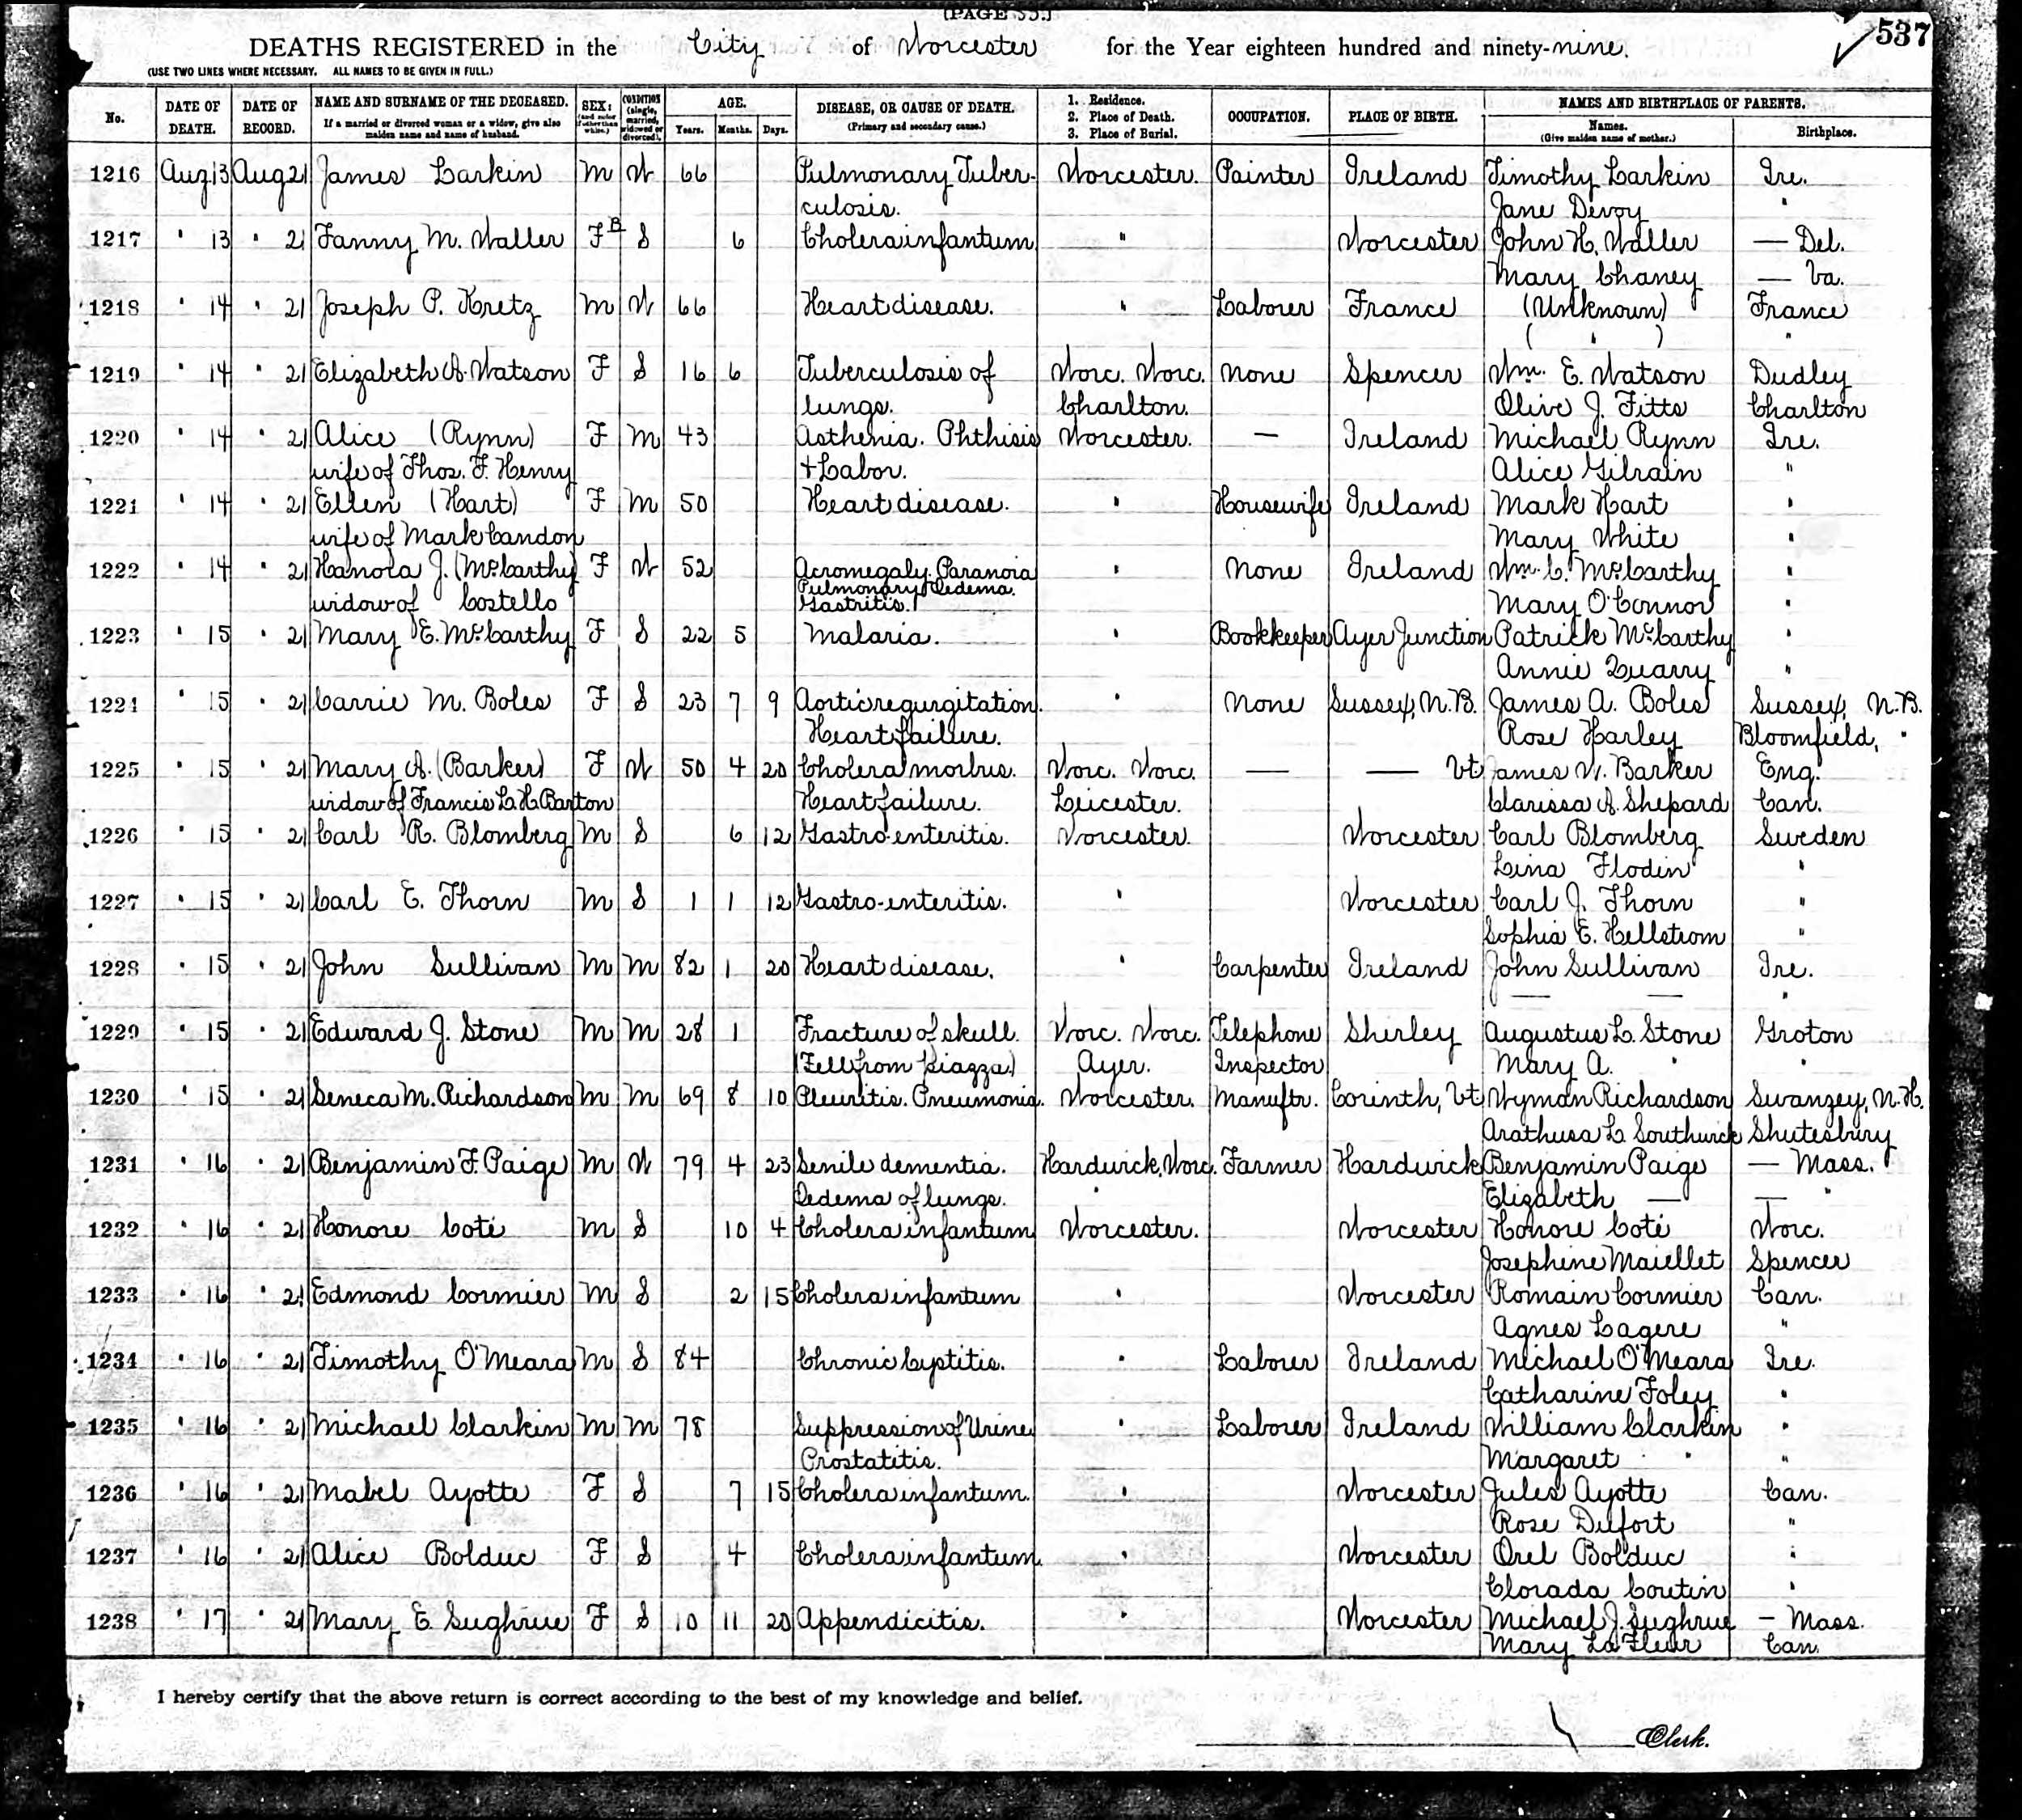 (PAGE 55.)
537
DEATHS REGISTERED in the City of Worcester for the Year eighteen hundred and ninety-nine.
(USE TWO LINES WHERE NECESSARY. ALL NAMES TO BE GIVEN IN FULL.)
No. DATE OF DEATH. DATE OF RECORD. NAME AND SURNAME OF THE DECEASED. If a married or divorced woman or a widow, give also maiden name and name of husband. SEX: (and color if other than white.) CONDITION (single, married, widowed or divorced). AGE. Years. Months. Days. DISEASE, OR CAUSE OF DEATH. (Primary and secondary cause.) 1. Residence. 2. Place of Death. 3. Place of Burial. OCCUPATION. PLACE OF BIRTH. NAMES AND BIRTHPLACE OF PARENTS. Names. (Give maiden name of mother.) Birthplace.
1216 Aug 13 Aug 21 James Larkin M W 66 Pulmonary Tuber- Worcester. Painter Ireland Timothy Larkin Ire.
culosis. Jane Devoy "
1217 " 13 " 21 Fanny M. Waller F B S 6 Cholera infantum " Worcester John H. Waller — Del.
Mary Chaney — Va.
1218 " 14 " 21 Joseph P. Kretz M W 66 Heart disease. " Laborer France (Unknown) France
( " ) "
1219 " 14 " 21 Elizabeth A. Watson F S 16 6 Tuberculosis of Worc. Worc. None Spencer Wm. E. Watson Dudley
lungs. Charlton. Olive J. Fitts Charlton
1220 " 14 " 21 Alice (Rynn) F M 43 Asthenia. Phthisis Worcester. — Ireland Michael Rynn Ire.
wife of Thos. F. Henry + Labor. Alice Gilrain "
1221 " 14 " 21 Ellen (Hart) F M 50 Heart disease. " Housewife Ireland Mark Hart "
wife of Mark Candon Mary White "
1222 " 14 " 21 Hanora J. (McCarthy) F W 52 Acromegaly. Paranoia " None Ireland Wm. C. McCarthy "
Pulmonary Oedema.
widow of Costello Gastritis. Mary O'Connor "
1223 " 15 " 21 Mary E. McCarthy F S 22 5 Malaria. " Bookkeeper Ayer Junction Patrick McCarthy "
Annie Quarry "
1224 " 15 " 21 Carrie M. Boles F S 23 7 9 Aortic regurgitation. " None Sussex, N.B. James A. Boles Sussex, N.B.
Heart failure. Rose Harley Bloomfield, "
1225 " 15 " 21 Mary A. (Barker) F W 50 4 20 Cholera morbus. Worc. Worc. — — Vt James W. Barker Eng.
widow of Francis L. H. Barton Heart failure. Leicester. Clarissa A. Shepard Can.
1226 " 15 " 21 Carl R. Blomberg M S 6 12 Gastro enteritis. Worcester. Worcester Carl Blomberg Sweden
Lina Flodin "
1227 " 15 " 21 Carl E. Thorn M S 1 1 12 Gastro-enteritis. " Worcester Carl J. Thorn "
Sophia E. Hellstrom "
1228 " 15 " 21 John Sullivan M M 82 1 20 Heart disease. " Carpenter Ireland John Sullivan Ire.
— — "
1229 " 15 " 21 Edward J. Stone M M 28 1 Fracture of skull. Worc. Worc. Telephone Shirley Augustus L. Stone Groton
(Fell from piazza.) Ayer. Inspector Mary A. " "
1230 " 15 " 21 Seneca M. Richardson M M 69 8 10 Pleuritis. Pneumonia. Worcester. Manuftr. Corinth, Vt Wyman Richardson Swanzey, N.H.
Arathusa L Southwick Shutesbury
1231 " 16 " 21 Benjamin F. Paige M W 79 4 23 Senile dementia. Hardwick, Worc. Farmer Hardwick Benjamin Paige — Mass.
Oedema of lungs. " Elizabeth — — "
1232 " 16 " 21 Honore Coté M S 10 4 Cholera infantum Worcester. Worcester Honore Coté Worc.
Josephine Maiellet Spencer
1233 " 16 " 21 Edmond Cormier M S 2 15 Cholera infantum " Worcester Romain Cormier Can.
Agnes Lagere "
1234 " 16 " 21 Timothy O'Meara M S 84 Chronic Cystitis. " Laborer Ireland Michael O'Meara Ire.
Catharine Foley "
1235 " 16 " 21 Michael Clarkin M M 78 Suppression of Urine " Laborer Ireland William Clarkin "
Prostatitis. Margaret " "
1236 " 16 " 21 Mabel Ayotte F S 7 15 Cholera infantum. " Worcester Jules Ayotte Can.
Rose Dufort "
1237 " 16 " 21 Alice Bolduc F S 4 Cholera infantum. " Worcester Orel Bolduc "
Clorada Coutin "
1238 " 17 " 21 Mary E. Sughrue F S 10 11 20 Appendicitis. " Worcester Michael J. Sughrue — Mass.
Mary La Fleur Can.
I hereby certify that the above return is correct according to the best of my knowledge and belief.
Clerk.